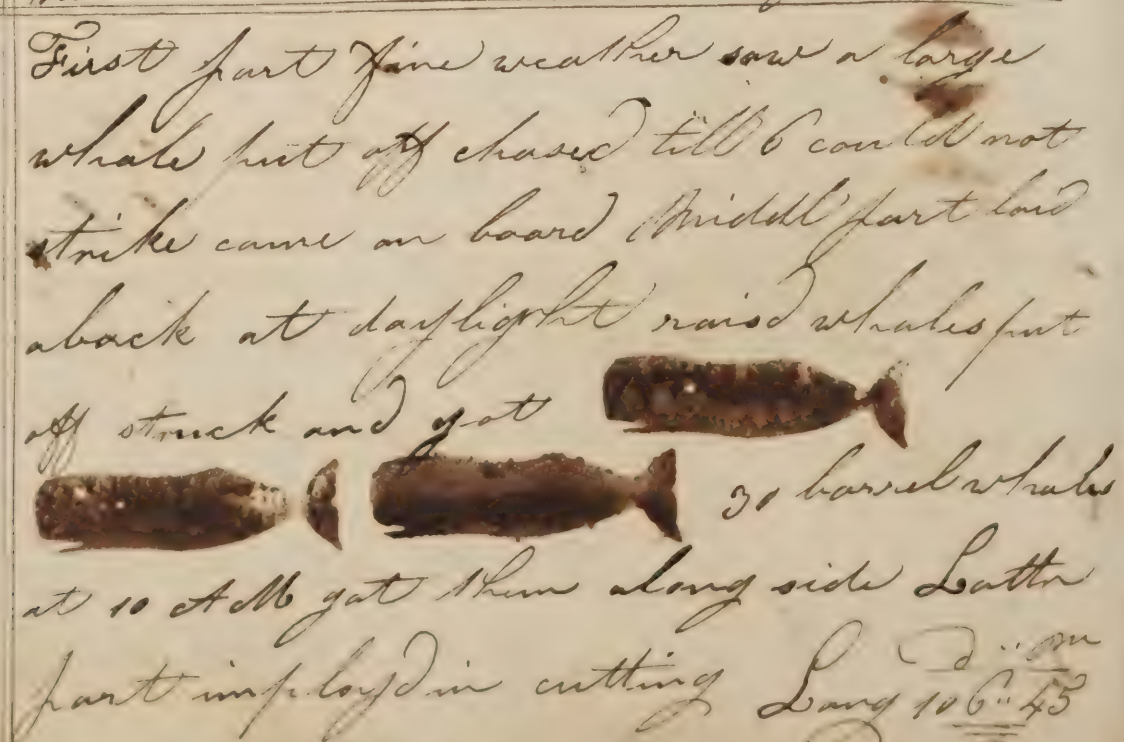 First part fine weather saw a large
whale put off chased till 6 could not
strike came on board Middl part laid
aback at daylight raisd whales put
off struck and got
30 barrel whales
at 10 AM got them along side Lattr
part imployd in cutting
D .. m
Long 106.. 45